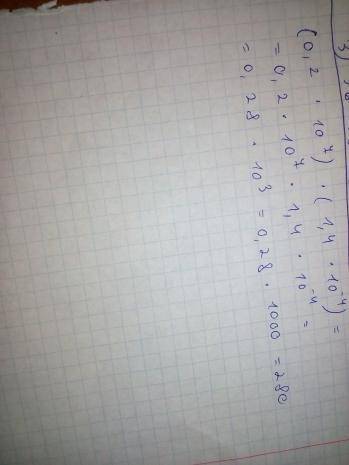 3)
(0,2 · 10⁷) · (1,4 · 10⁻⁴) =
= 0,2 · 10⁷ · 1,4 · 10⁻⁴ =
= 0,28 · 10³ = 0,28 · 1000 = 280